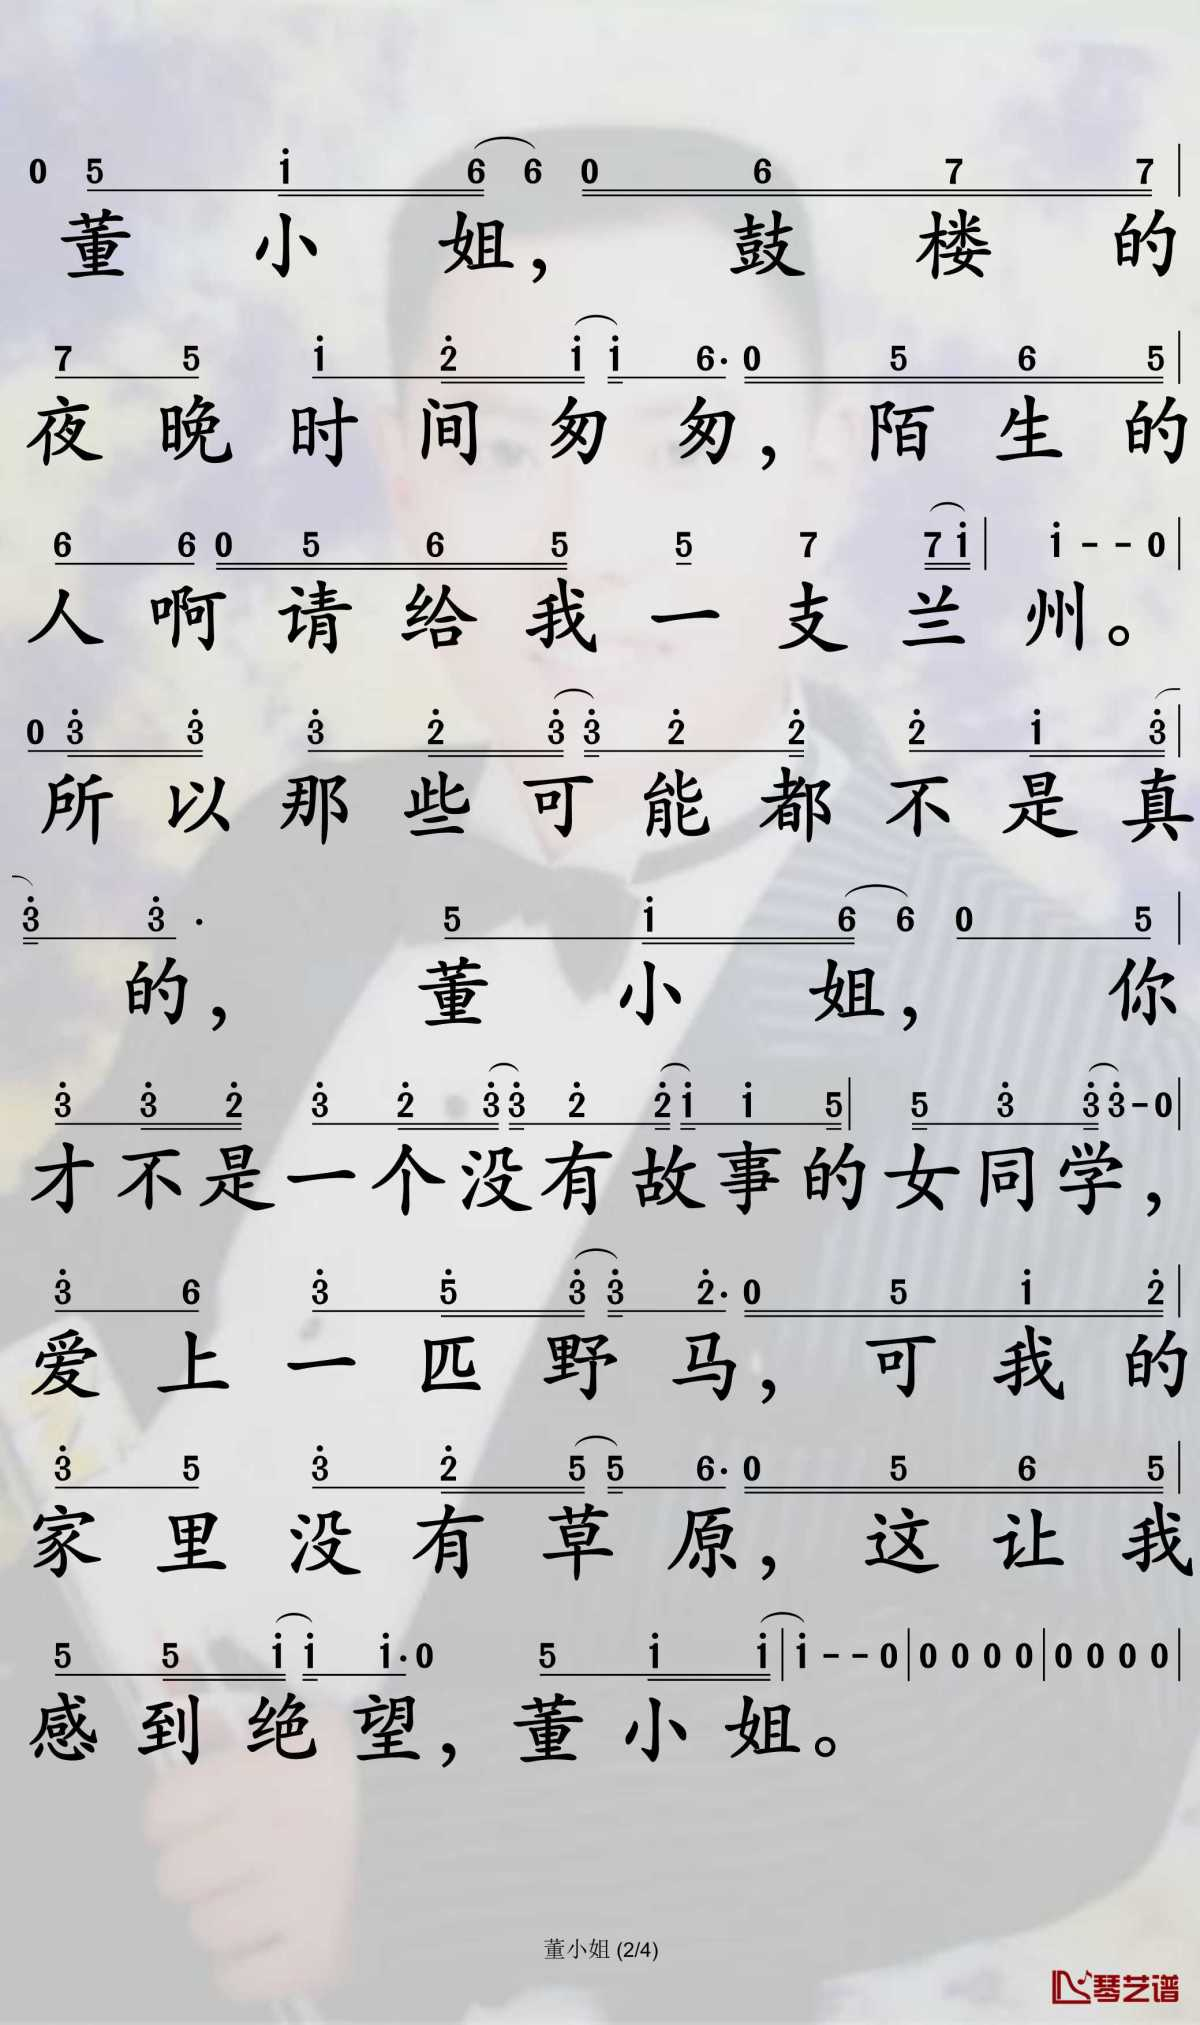 0 5 i 6 6 0 6 7 7
董小姐，鼓楼的
7 5 i 2 i i 6· 0 5 6 5
夜晚时间匆匆，陌生的
6 6 0 5 6 5 5 7 7 i | i - - 0
人啊请给我一支兰州。
0 3 3 3 2 3 3 2 2 2 1 3
所以那些可能都不是真
3 3 · 5 i 6 6 0 5
的，董小姐，你
3 3 2 3 2 3 3 2 2 i i 5 | 5 3 3 3 - 0
才不是一个没有故事的女同学，
3 6 3 5 3 3 2· 0 5 i 2
爱上一匹野马，可我的
3 5 3 2 5 5 6· 0 5 6 5
家里没有草原，这让我
5 5 i i i· 0 5 i i | i - - 0 | 0 0 0 0 | 0 0 0 0
感到绝望，董小姐。
董小姐 (2/4)
琴艺谱